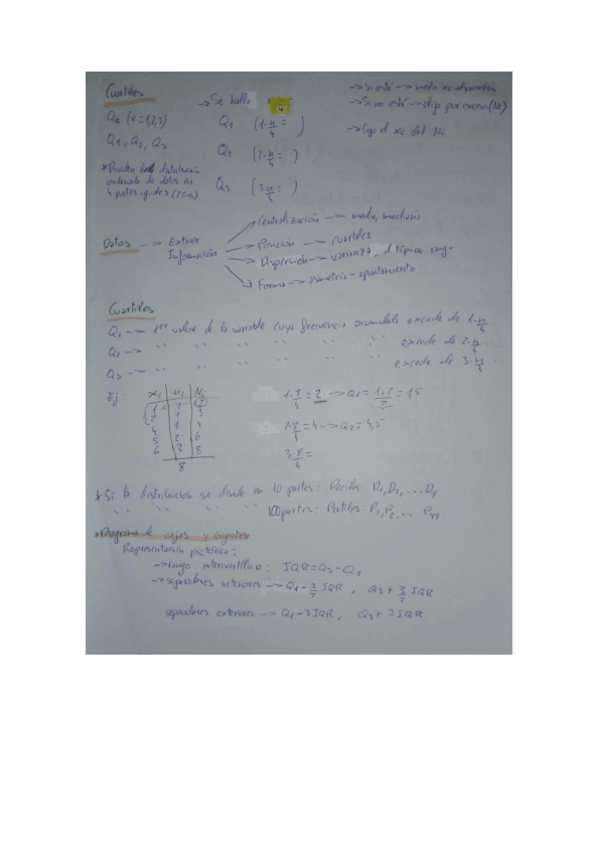 Cuartiles
→ Se halla n/4
→ Si está → media xi
→ Si no está → por exceso (Ni)
→ Cojo el xi del Ni
Qr (r=1,2,3)
Q1, Q2, Q3
Q1 (1·n/4 = )
Q2 (2·n/4 = )
Q3 (3·n/4 = )
* Dividen la distribución
ordenada de datos en
4 partes iguales (25%)
Datos → Extraer Información
→ Centralización → media, mediana
→ Posición → cuartiles
→ Dispersión → varianza, d. típica, rango
→ Forma → simetría - apuntamiento
Cuartiles
Q1 → 1er valor de la variable cuya frecuencia acumulada excede de 1·n/4
Q2 → " " " " " " " excede de 2·n/4
Q3 → " " " " " " " excede de 3·n/4
Ej:
xi | ni | Ni
1 | 2 | 2
2 | 1 | 3
4 | 1 | 4
5 | 2 | 6
6 | 2 | 8
8
1·8/4 = 2 → Q1 = 1+2/2 = 1,5
2·8/4 = 4 → Q2 = 4,5
3·8/4 =
* Si la distribución se divide en 10 partes: Deciles: D1, D2, ... D9
" " " " " 100 partes: Pertiles: P1, P2, ... P99
* Diagrama de cajas y bigotes
Representación pictórica:
→ rango intercuartílico: IQR = Q3 - Q1
→ separadores interiores → Q1 - 3/2 IQR, Q3 + 3/2 IQR
separadores exteriores → Q1 - 3 IQR, Q3 + 3 IQR